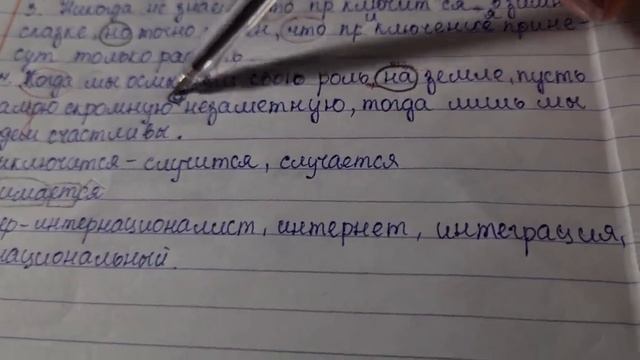 3. Никогда не
сладке, но точно что приключение прине-
сут только
Когда мы свою роль, на земле, пусть
скромную незаметную, тогда лишь мы
дем счастливы.
иключатся - случится, случается
имается
ер - интернационалист, интернет, интеграция,
национальный.